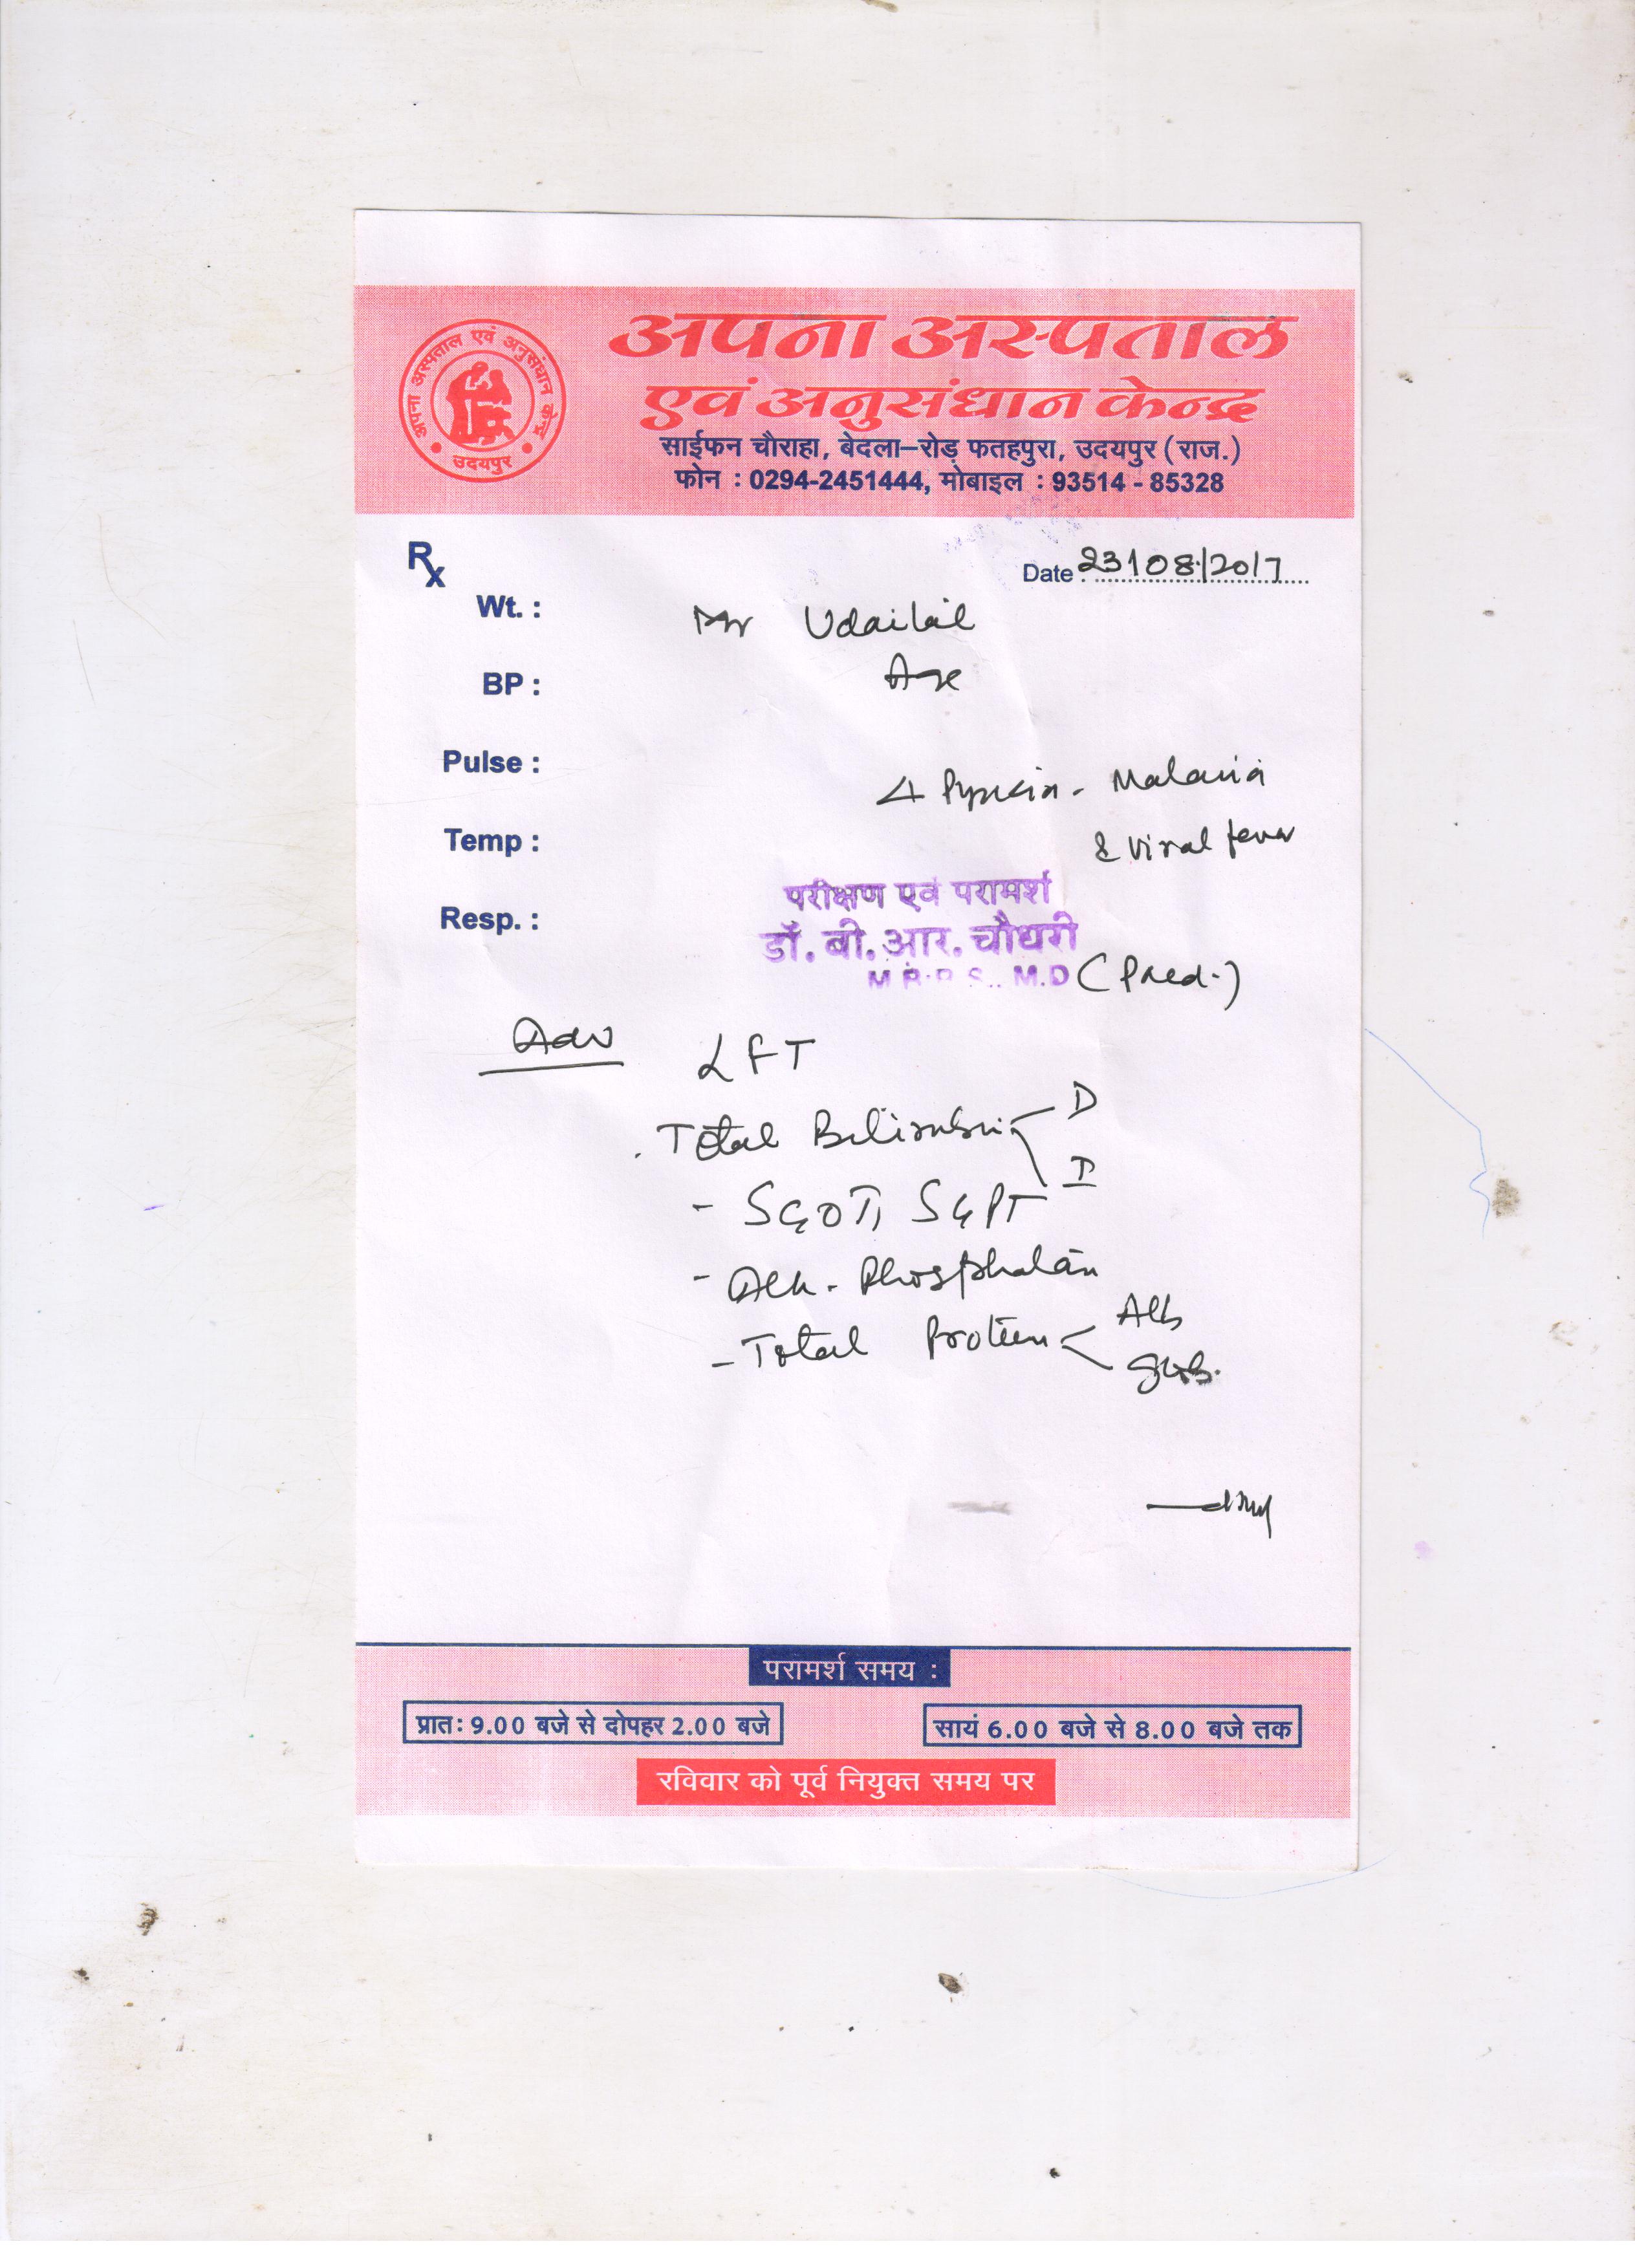 अपना अस्पताल
एवं अनुसंधान केन्द्र
साईफन चौराहा, बेदला–रोड़ फतहपुरा, उदयपुर (राज.)
फोन : 0294-2451444, मोबाइल : 93514 - 85328
अपना अस्पताल एवं अनुसंधान केन्द्र
उदयपुर
Rx
Date 23/08/2017
Wt. :
Mr Udailal
BP :
Age
Pulse :
Δ Pyrexia - Malaria
Temp :
& Viral fever
परीक्षण एवं परामर्श
Resp. :
डॉ. बी. आर. चौधरी
M.B.B.S., M.D (Paed.)
Adv LFT
. Total Bilirubin D
I
- SGOT, SGPT
- Alk. Phosphatan
- Total Protien < Alb
Glob.
परामर्श समय :
प्रातः 9.00 बजे से दोपहर 2.00 बजे
सायं 6.00 बजे से 8.00 बजे तक
रविवार को पूर्व नियुक्त समय पर